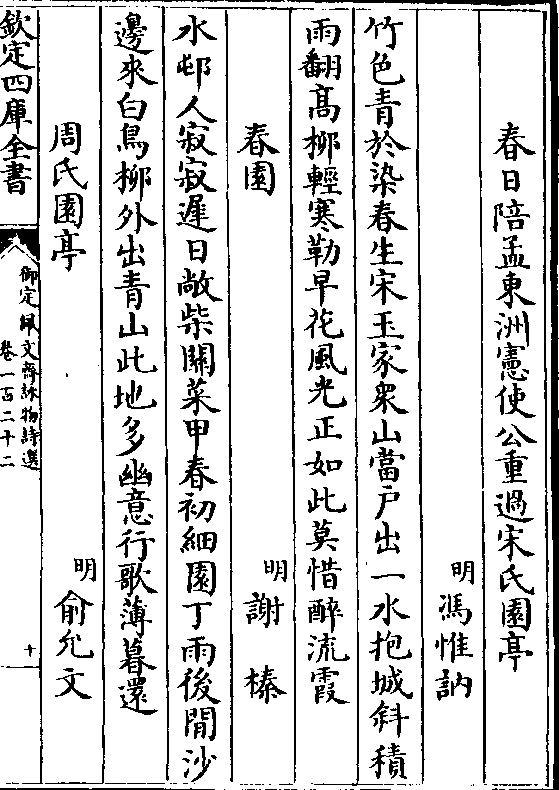 春日陪孟東洲憲使公重過宋氏園亭
明 馮惟訥
竹色青於染春生宋玉家衆山當戶出一水抱城斜積
雨翻高柳輕寒勒早花風光正如此莫惜醉流霞
春園 明 謝榛
水邨人寂寂遲日敞柴關菜甲春初細園丁雨後閒沙
邊來白鳥柳外出青山此地多幽意行歌薄暮還
周氏園亭 明 俞允文
欽定四庫全書
御定佩文齋詠物詩選
卷一百二十二
十